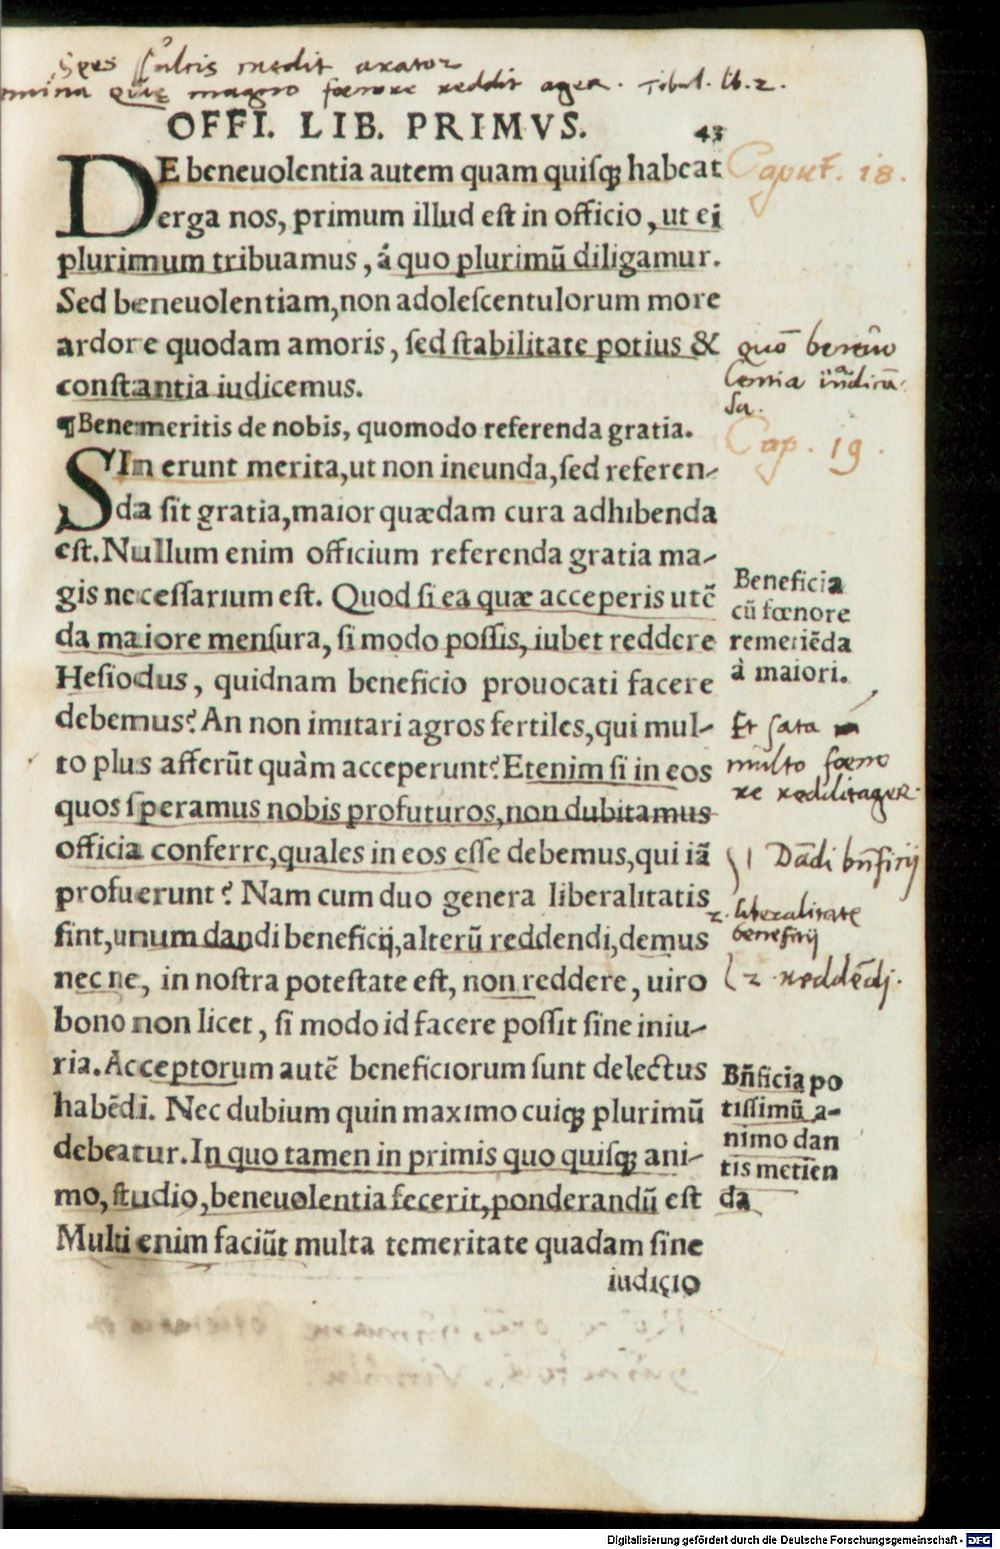 Spes sulcis credit arator
mina quę magno foenore reddit ager. Tibul. lib. 2.
OFFI. LIB. PRIMVS. 43
DE beneuolentia autem quam quisqꝫ habeat
erga nos, primum illud est in officio, ut ei
plurimum tribuamus, á quo plurimũ diligamur.
Sed beneuolentiam, non adolescentulorum more
ardore quodam amoris, sed stabilitate potius &
constantia iudicemus.
¶Benemeritis de nobis, quomodo referenda gratia.
SIn erunt merita, ut non ineunda, sed referen-
da sit gratia, maior quædam cura adhibenda
est. Nullum enim officium referenda gratia ma-
gis necessarium est. Quod si ea quæ acceperis utẽ
da maiore mensura, si modo possis, iubet reddere
Hesiodus, quidnam beneficio prouocati facere
debemus? An non imitari agros fertiles, qui mul-
to plus afferũt quàm acceperunt? Etenim si in eos
quos speramus nobis profuturos, non dubitamus
officia conferre, quales in eos esse debemus, qui iã
profuerunt? Nam cum duo genera liberalitatis
sint, unum dandi beneficij, alterũ reddendi, demus
nec ne, in nostra potestate est, non reddere, uiro
bono non licet, si modo id facere possit sine iniu-
ria. Acceptorum autẽ beneficiorum sunt delectus
habẽdi. Nec dubium quin maximo cuiqꝫ plurimũ
debeatur. In quo tamen in primis quo quisqꝫ ani-
mo, studio, beneuolentia fecerit, ponderandũ est
Multi enim faciũt multa temeritate quadam sine
iudicio
Caput. 18.
Cap. 19.
Beneficia
cũ fœnore
remeriẽda
à maiori.
Et sata
multo foeno
re reddit ager.
1 Dãdi
2. liberalitate
beneficij
2 reddẽdj.
Bñficia po
tissimũ a-
nimo dan
tis metien
da
Digitalisierung gefördert durch die Deutsche Forschungsgemeinschaft - DFG